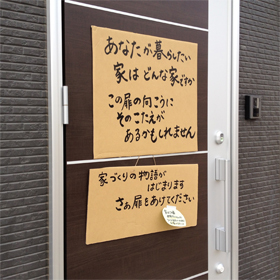 あなたが暮らしたい
家はどんな家ですか
この扉の向こうに
そのこたえが
あるかもしれません
家づくりの物語が
はじまります
さぁ扉をあけてください